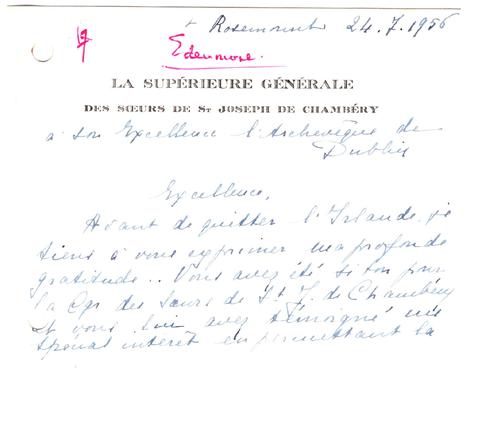 + Rosemount 24.7.1956
Edenmore.
LA SUPÉRIEURE GÉNÉRALE
DES SŒURS DE ST JOSEPH DE CHAMBÉRY
à Son Excellence l'Archevêque de
Dublin
Excellence,
Avant de quitter l'Irlande, je
tiens à vous exprimer ma profonde
gratitude.. Vous avez été si bon pour
la Cgr. des Sœurs de St J. de Chambéry
et vous lui avez témoigné un
spécial intérêt en permettant la